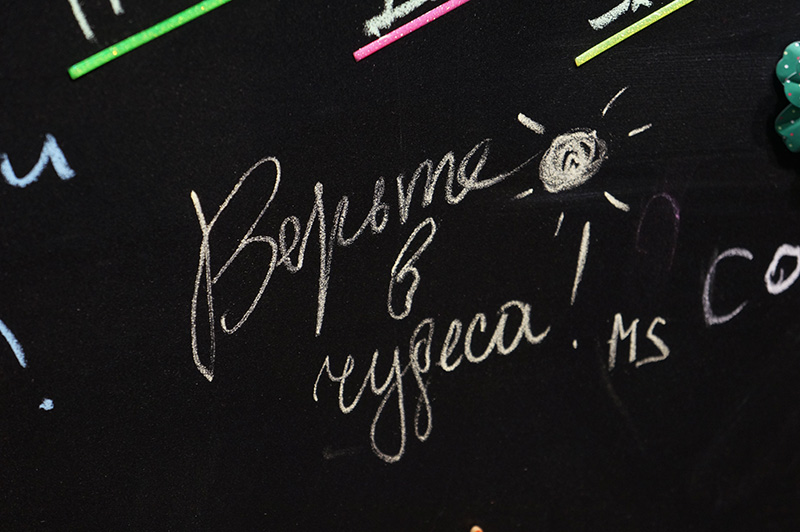 Верьте
в
чудеса! MS
и
со